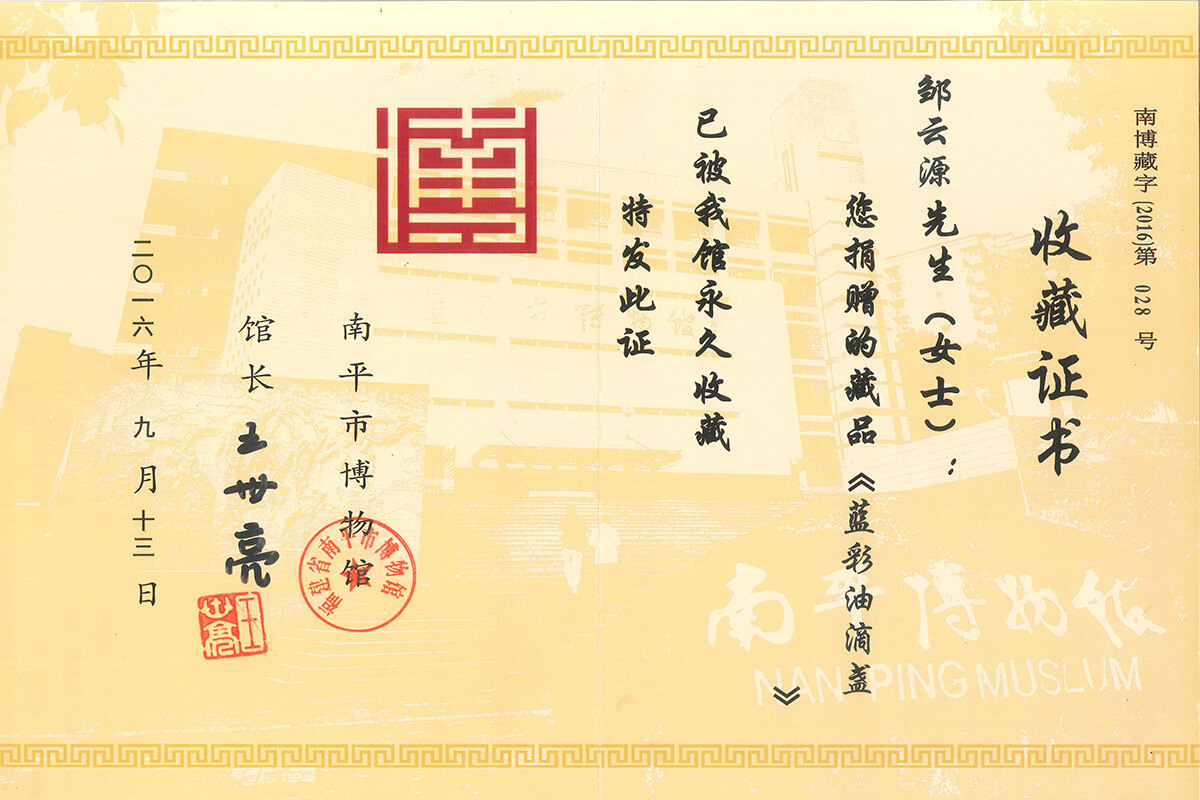 南博藏字(2016)第 028 号
收藏证书
邹云源先生（女士）：
您捐赠的藏品《蓝彩油滴盏
》
已被我馆永久收藏
特发此证
南平市博物馆
馆长 王世亮
二〇一六年 九月十三日
福建省南平市博物馆
王世亮
南平博物馆
NANPING MUSLUM